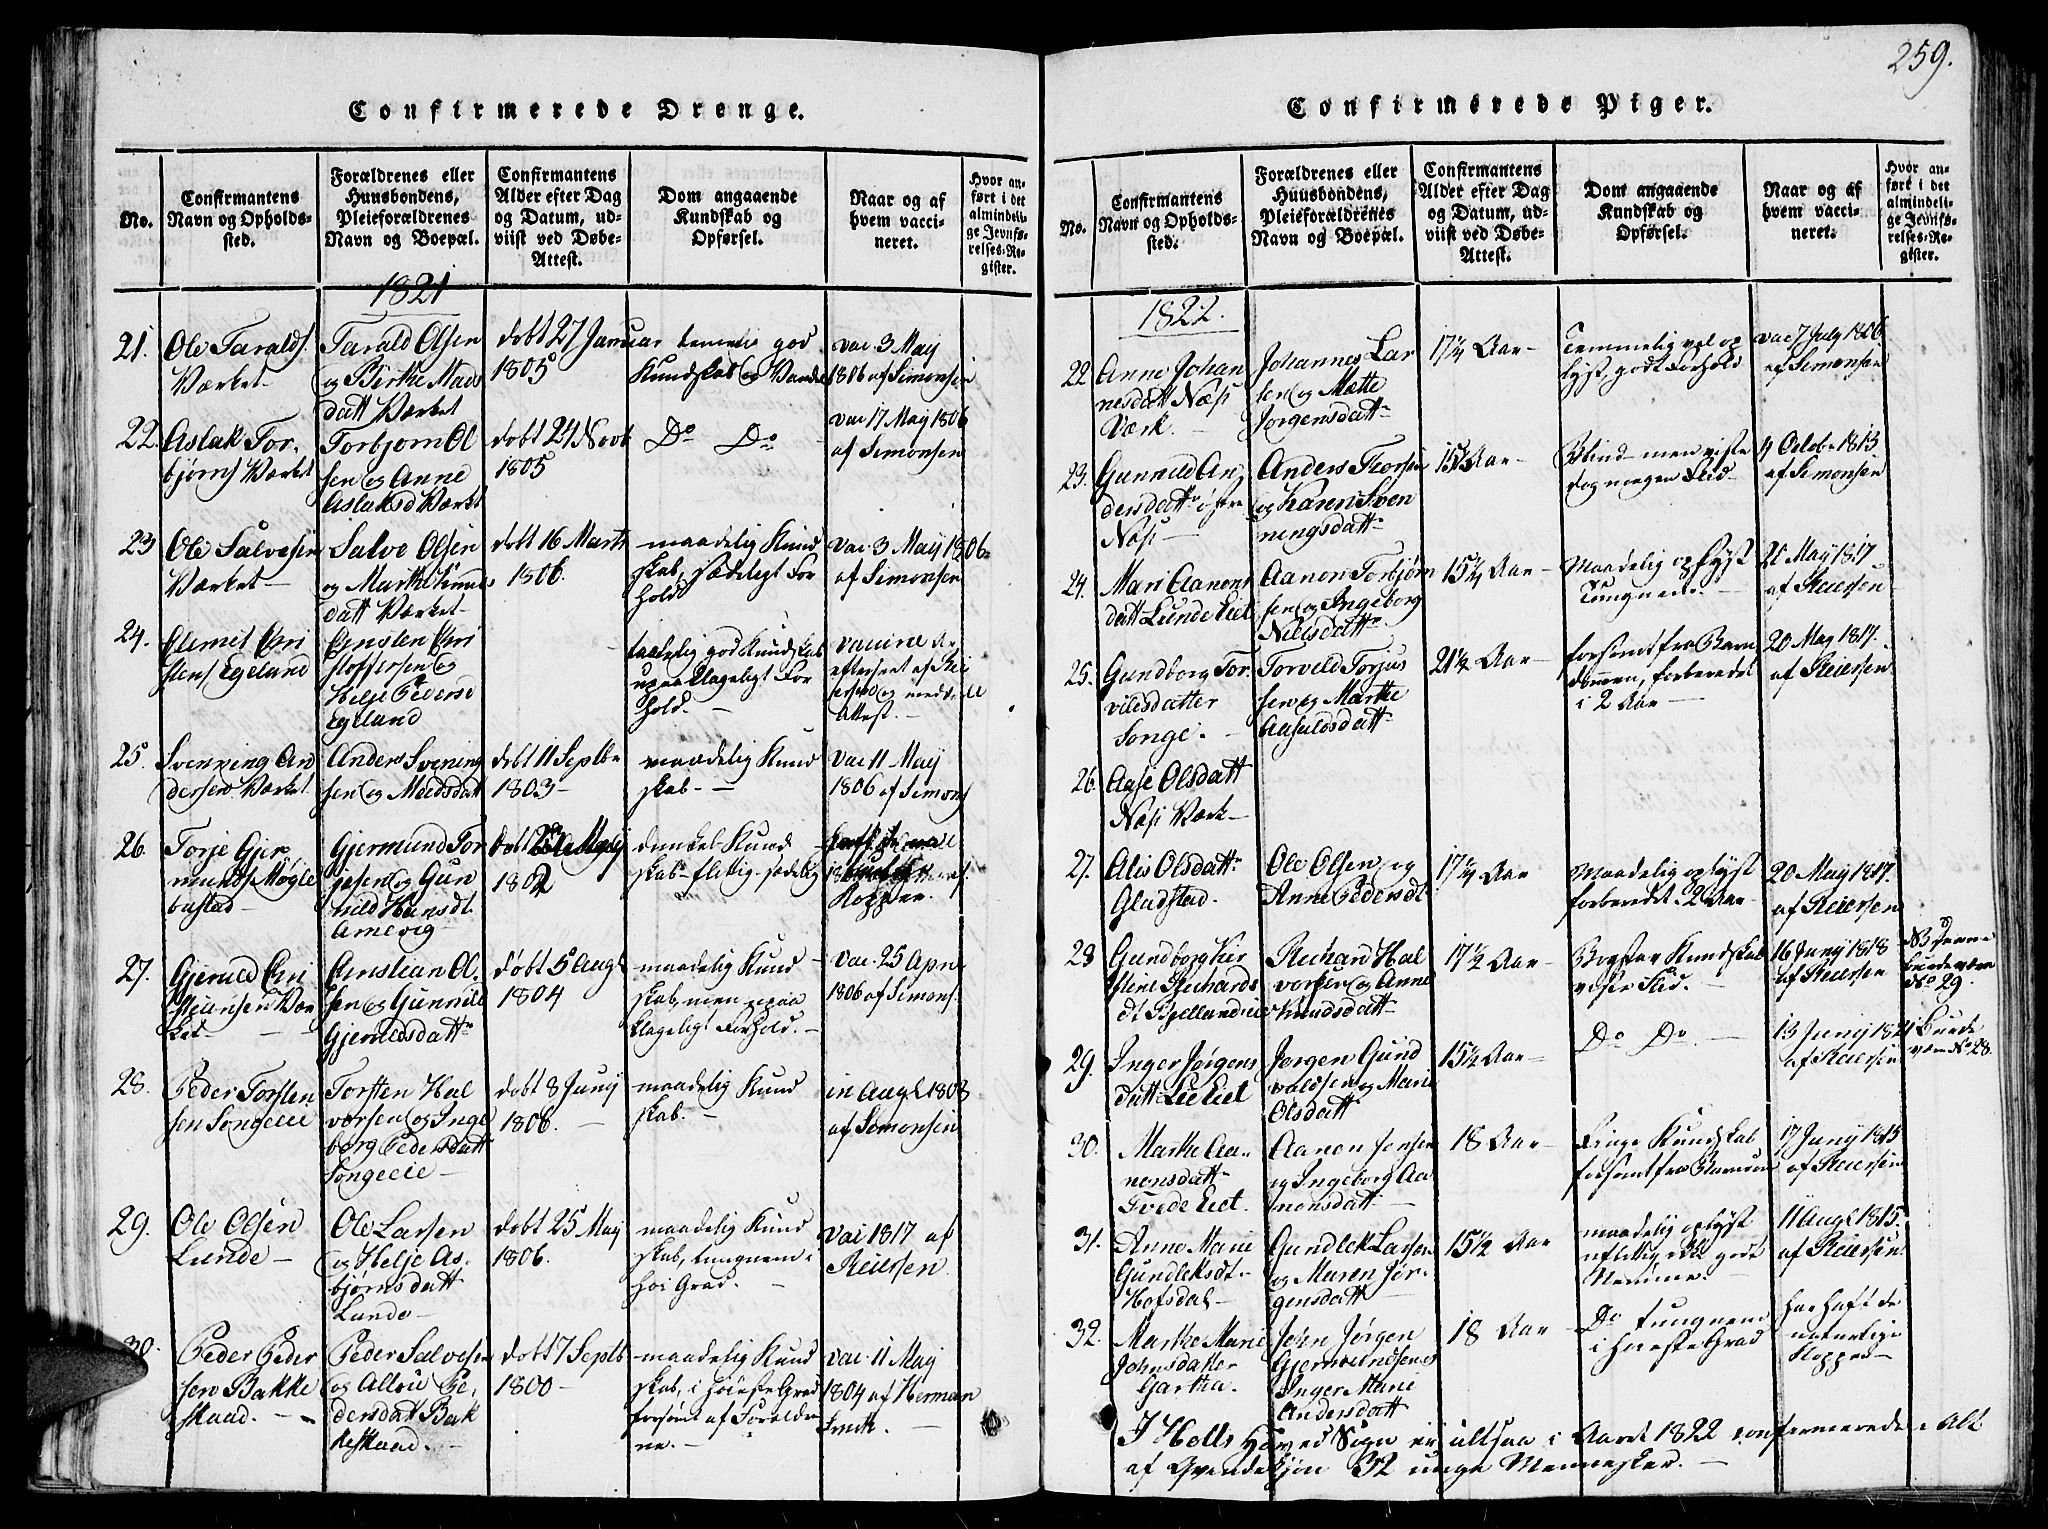 Confirmerede Drenge.
No.
Confirmantens
Navn og Opholds-
sted.
Forældrenes eller
Huusbondens,
Pleieforældrenes
Navn og Boepæl.
Confirmantens
Alder efter Dag
og Datum, ud-
viist ved Døbe-
Attest.
Dom angaaende
Kundskab og
Opførsel.
Naar og af
hvem vacci-
neret.
Hvor an-
ført i det
almindeli-
ge Jevnfø-
relses-Re-
gister.
1821
21.
Ole Taralds.
Værket
Tarald Olsen
og Birthe Mads
datt Værket
døbt 27 Januar
1805
god
Kundskab og
vac 3 Maij
1806 af Simonsen
22.
Aslak Tor-
bjørns Værket
Torbjørn Ol
sen og Anne
Aslaksd Værket
døbt 24 Novb
1805
Do Do
vac 17 Maij 1806
af Simonsen
23
Ole Salvesen
Værket
Salve Olsen
og Marthe
datt Værket
døbt 16 Marts
1806.
maadelig Kund
skab, sædeligt For
hold
vac 3 Maij 1806
af Simonsen
24.
Clemet Chri
stens Egeland
Christen Chri
stoffersen og
Helje Pedersd
Egeland
god Kundskab
upaaklageligt For
hold.
Attest.
25.
Svenning An
dersen Værket
Anders Svening
sen og Madsdatt
døbt 11 Septbr
1803
maadelig Kund
skab
vac 11 Maij
1806 af Simons
26.
Torje Gjer
munds Møgle
bustad
Gjermund Tor
jesen og Gun
nild Hansdt
Arnevig
døbt Maij
1802
dunkel Kund
skab flittig sædelig
Kopper.
27.
Gjeruld Chri
stensen Vær
ket
Christian Ol
sen og Gunnild
Gjeruldsdatt
døbt 5 Augt
1804
maadelig Kund
skab, men upaa
klageligt Forhold.
vac. 25 Apr
1806 af Simons.
28.
Peder Torsten
sen Songeeie
Torsten Hal
vorsen og Inge
borg Pedersdatt
Songeeie
døbt 8 Junij
1806.
maadelig Kund
skab.
in Augt 1808
af Simonsen
29.
Ole Olsen
Lunde
Ole Larsen
og Helje As-
bjørnsdatt
Lunde
døbt 25 Maij
1806.
maadelig Kund
skab, tungnem i
høi Grad.
vac 1817 af
Reiersen.
30.
Peder Peder
sen Bakke
skaad.
Peder Salvesen
og Allou Pe-
dersdatt Bak
keskaad.
døbt 7 Septb
1800
maadelig Kund
skab, i høieste Grad
forsømt af Foreldre
ne.
vac. 11 Maij
1804 af Herman
Smith.
259.
Confirmerede Piger.
No.
Confirmantens
Navn og Opholds-
sted.
Forældrenes eller
Huusbondens,
Pleieforældrenes
Navn og Boepæl.
Confirmantens
Alder efter Dag
og Datum, ud-
viist ved Døbe-
Attest.
Dom angaaende
Kundskab og
Opførsel.
Naar og af
hvem vacci-
neret.
Hvor an-
ført i det
almindeli-
ge Jevnfø-
relses-Re-
gister.
1822.
22
Anne Johan
nesdatt Næs
Værk.
Johannes Lar
sen og Mætte
Jørgensdatt
17½ Aar
Temmelig vel op
lyst, godt Forhold
vac 7 July 1806
af Simonsen
23.
Gunnild An
dersdatt østre
Næs
Anders Thorsen
og Karen Sven
ningsdatt
15½ Aar
Blind men viste
dog megen Flid
4 Octob. 1813
af Simonsen
24.
Mari Aanons
datt Lunde Eiet
Aanon Torbjørn
sen og Ingeborg
Nilesdatt
15½ Aar
Maadelig oplyst
Tungnem.
21 Maij 1817
af Reiersen
25.
Gundborg Tor
vildsdatter
Songe.
Torvild Torjus
sen og Marthe
Aasulosdatt
21½ Aar
forsømt fra Barn
dommen, forberedet
i 2 Aar
20 Maij 1817.
af Reiersen
26.
Aase Olsdatt
Næs Værk
27.
Alis Olsdatt
Gladstad.
Ole Olsen og
Anne Pedersdt
17½ Aar
Maadelig oplyst
forberedet 2 Aar
20 Maij 1817.
af Reiersen
28
Gundborg Kir
stine Richards
dt
Richard Hal
vorsen og Anne
Knudsdatt
17½ Aar
Kundskab
viser Flid.
16 Junij 1818
af Reiersen
NB denne
burde være
No 29.
29.
Inger Jørgens
datt Lie Eiet
Jørgen Gund
valdsen og Marie
Olsdatt
15½ Aar
Do Do
13 Junij 1821
af Reiersen
burde
være No 28.
30.
Marthe Aa-
nonsdatt
Tvede Eiet.
Aanon Jensen
og Ingeborg Aa
nonsdatt
18 Aar
Ringe Kundskab
forsømt fra Barndom
17 Junij 1815
af Reiersen
31.
Anne Marie
Gundleksdt
Hofsdal
Gundlek Larsen
og Maren Jør-
gensdatt
15½ Aar
maadelig oplyst
uflittig, ikke godt
Nemme.
11 Augt 1815.
af Reiersen
32.
Marthe Marie
Johnsdatter
Gartha.
John Jørgen
Gjermundsen og
Inger Marie
Andersdatt
18 Aar
Do tungnem
i høieste Grad
har haft de
naturlige
Kopper
I Holts Hoved Sogn er altsaa i Aaret 1822 confirmerede i Alt
af Qvendekjøn 32 unge Mennesker.